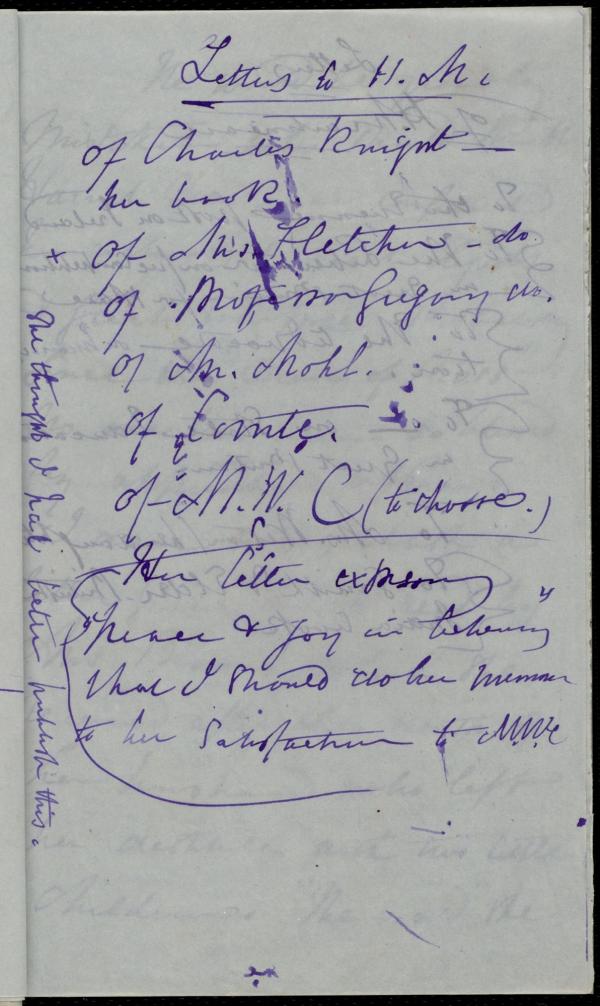 Letters to H. M.
of Charles Knight —
her book.
+ of Mrs. Fletcher - do.
of Professor Gregory do.
of M. Mohl.
of Comte.
of M. W. C (to choose.)
Her letter expressing
"peace & joy in believing"
that I should do her memoir
to her satisfaction to MWC
She thought I had better publish this.